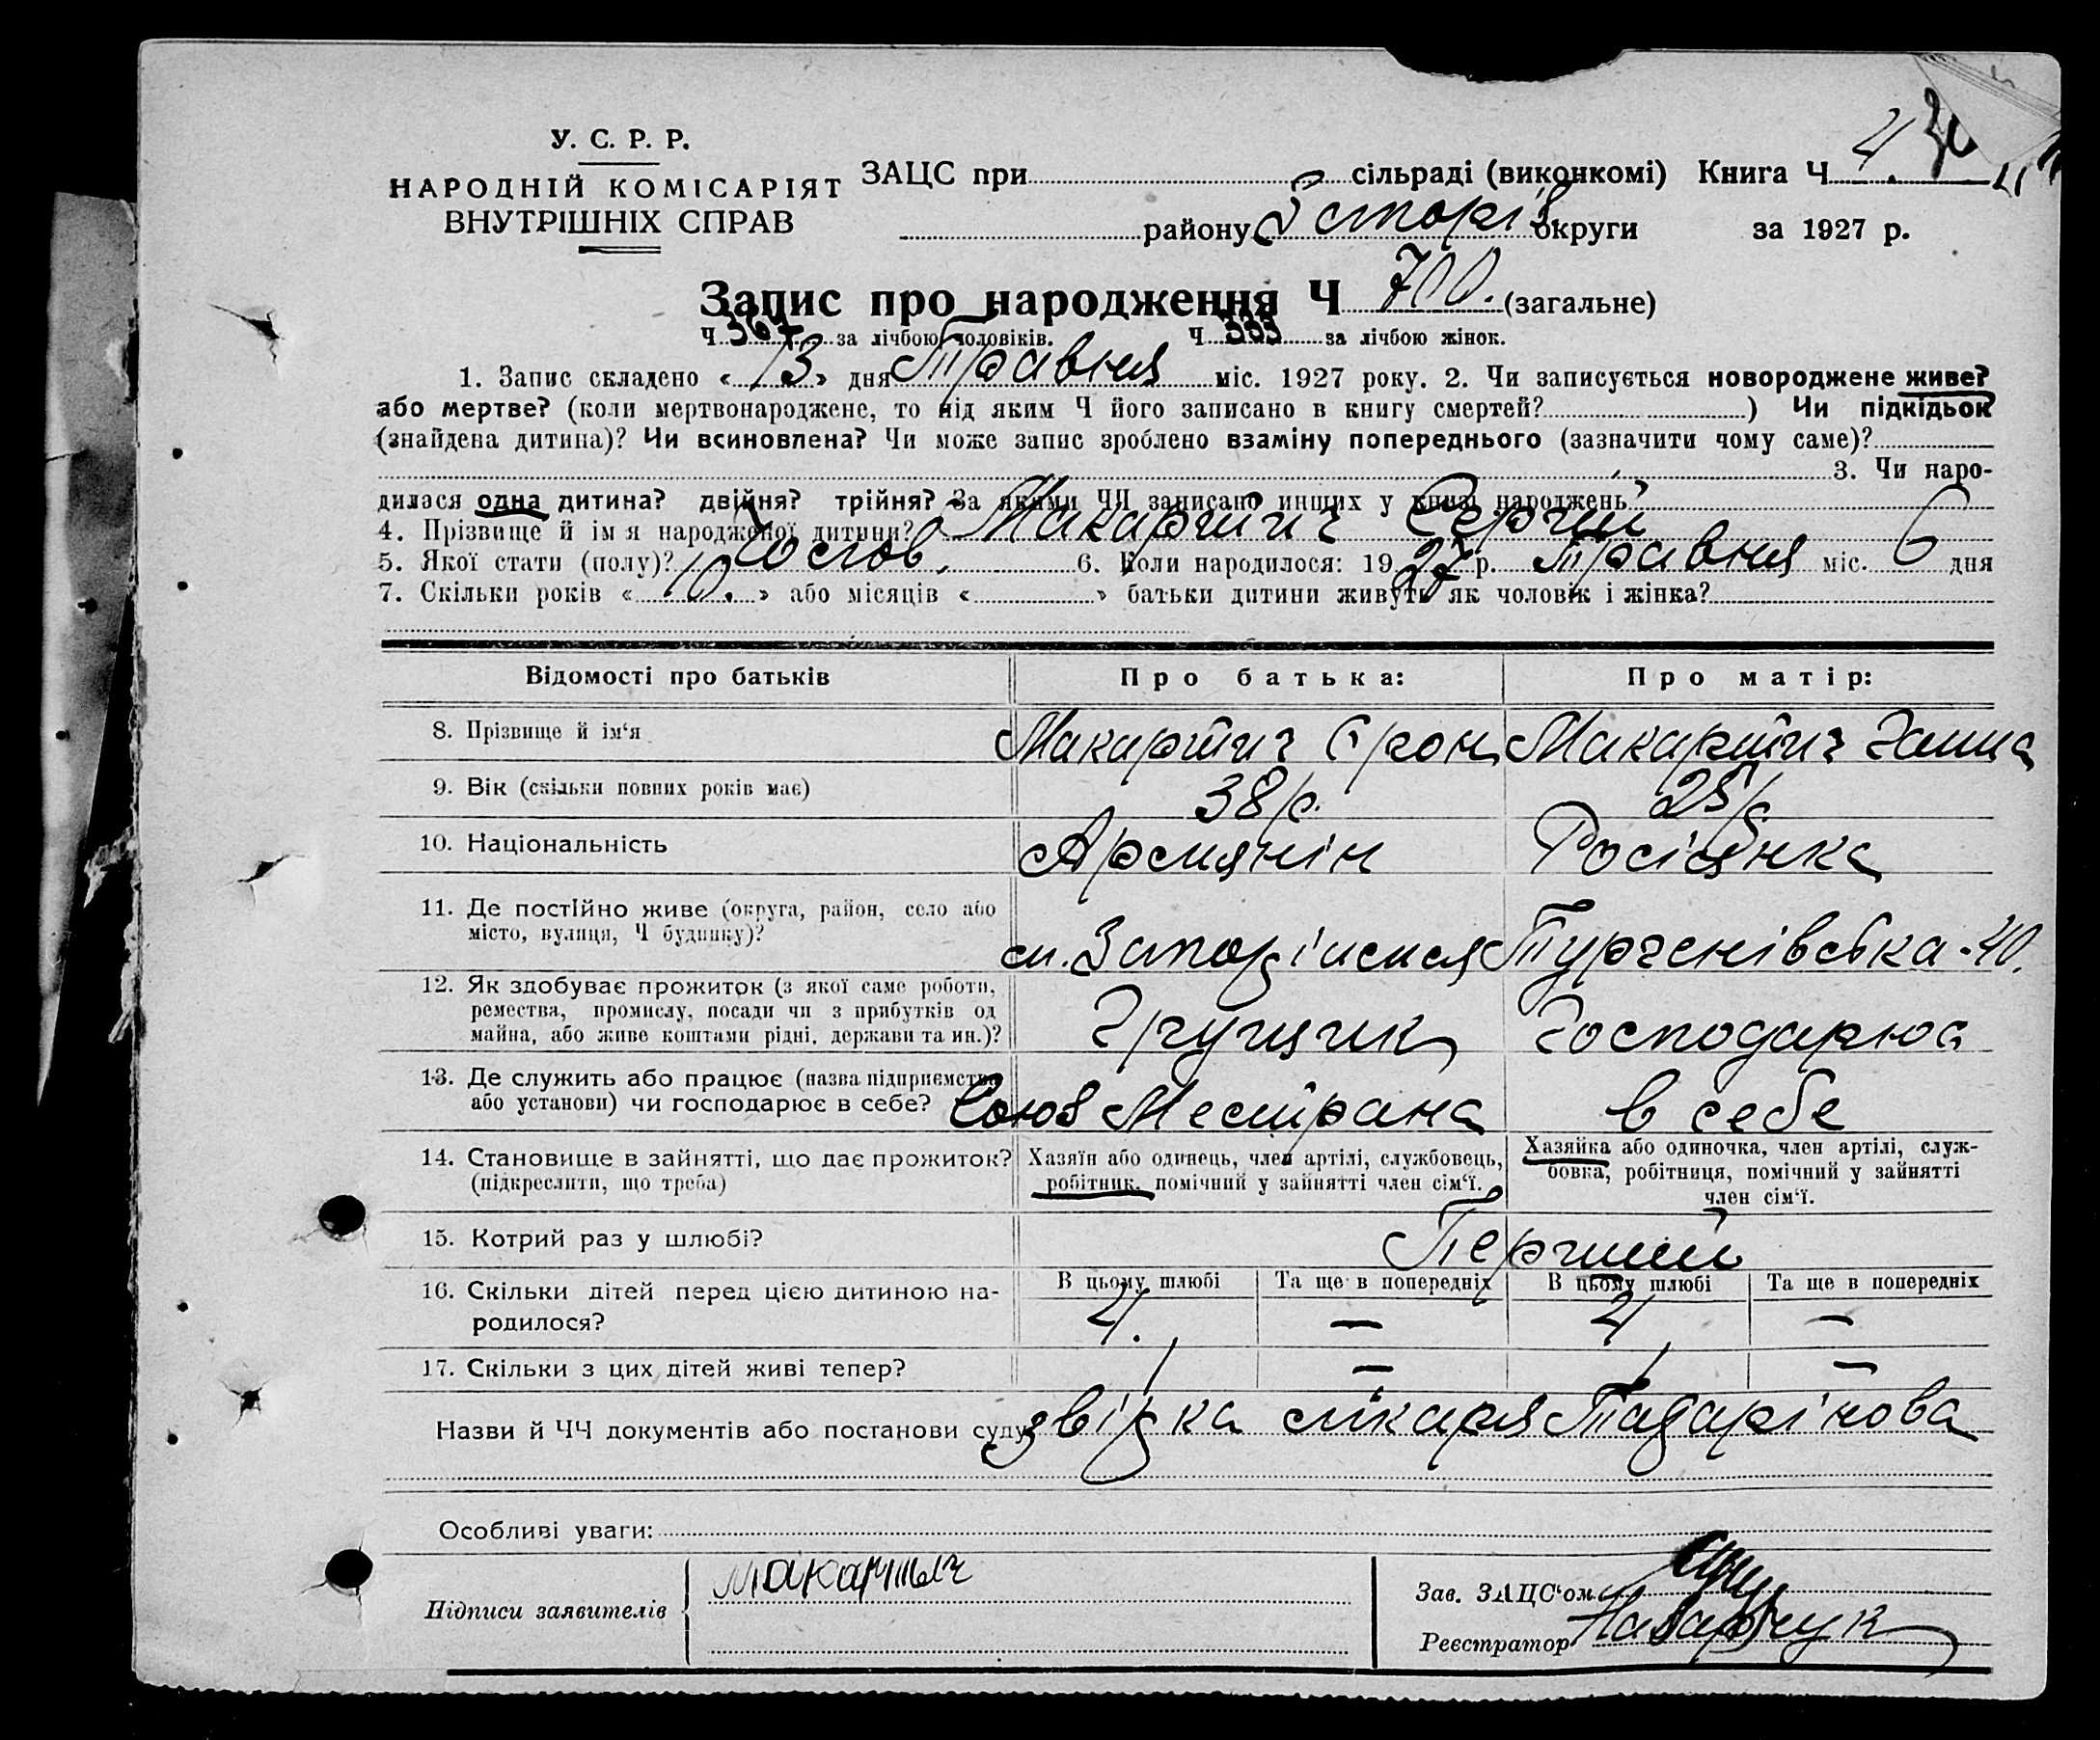 У. С. Р. Р.
НАРОДНІЙ КОМІСАРІЯТ
ВНУТРІШНІХ СПРАВ
ЗАЦС при сільраді (виконкомі) Книга Ч 4.
району округи за 1927 р.
Запис про народження Ч 700. (загальне)
Ч 367 за лічбою чоловіків. Ч 333 за лічбою жінок.
1. Запис складено « 13 » дня Травня міс. 1927 року. 2. Чи записується новороджене живе?
або мертве? (коли мертвонароджене, то під яким Ч його записано в книгу смертей? ) Чи підкідьок
(знайдена дитина)? Чи всиновлена? Чи може запис зроблено взаміну попереднього (зазначити чому саме)?
3. Чи наро-
дилася одна дитина? двійня? трійня? За якими ЧЯ записано инших у книзі народжень?
4. Прізвище й ім я народженої дитини? Макартич Сергій
5. Якої стати (полу)? Чолов. 6. Коли народилося: 1927 р. Травня міс. 6 дня
7. Скільки років « 10. » або місяців « » батьки дитини живуть як чоловік і жінка?
Відомості про батьків Про батька: Про матір:
8. Прізвище й ім‘я Макартич Макартич Ганна
9. Вік (скільки повних років має) 38 р. 25 р
10. Національність Армянін Росіянка
11. Де постійно живе (округа, район, село або
місто, вулиця, Ч будинку)? Тургенівська - 40.
12. Як здобуває прожиток (з якої саме роботи,
ремества, промислу, посади чи з прибутків од
майна, або живе коштами рідні, держави та ин.)? Грущик Господарює
13. Де служить або працює (назва підприємства
або установи) чи господарює в себе? Союз Местрана в себе
14. Становище в зайнятті, що дає прожиток?
(підкреслити, що треба)
Хазяїн або одинець, член артілі, службовець,
робітник, помічний у зайнятті член сім‘ї.
Хазяйка або одиночка, член артілі, служ-
бовка, робітниця, помічний у зайнятті
член сім‘ї.
15. Котрий раз у шлюбі? Перший
В цьому шлюбі Та ще в попередніх В цьому шлюбі Та ще в попередніх
16. Скільки дітей перед цією дитиною на-
родилося? 4. — 4 —
17. Скільки з цих дітей живі тепер? 1 — 1 —
Назви й ЧЧ документів або постанови суду звідка лікаря
Особливі уваги:
Підписи заявителів Макартыч
Зав. ЗАЦС‘ом
Реєстратор